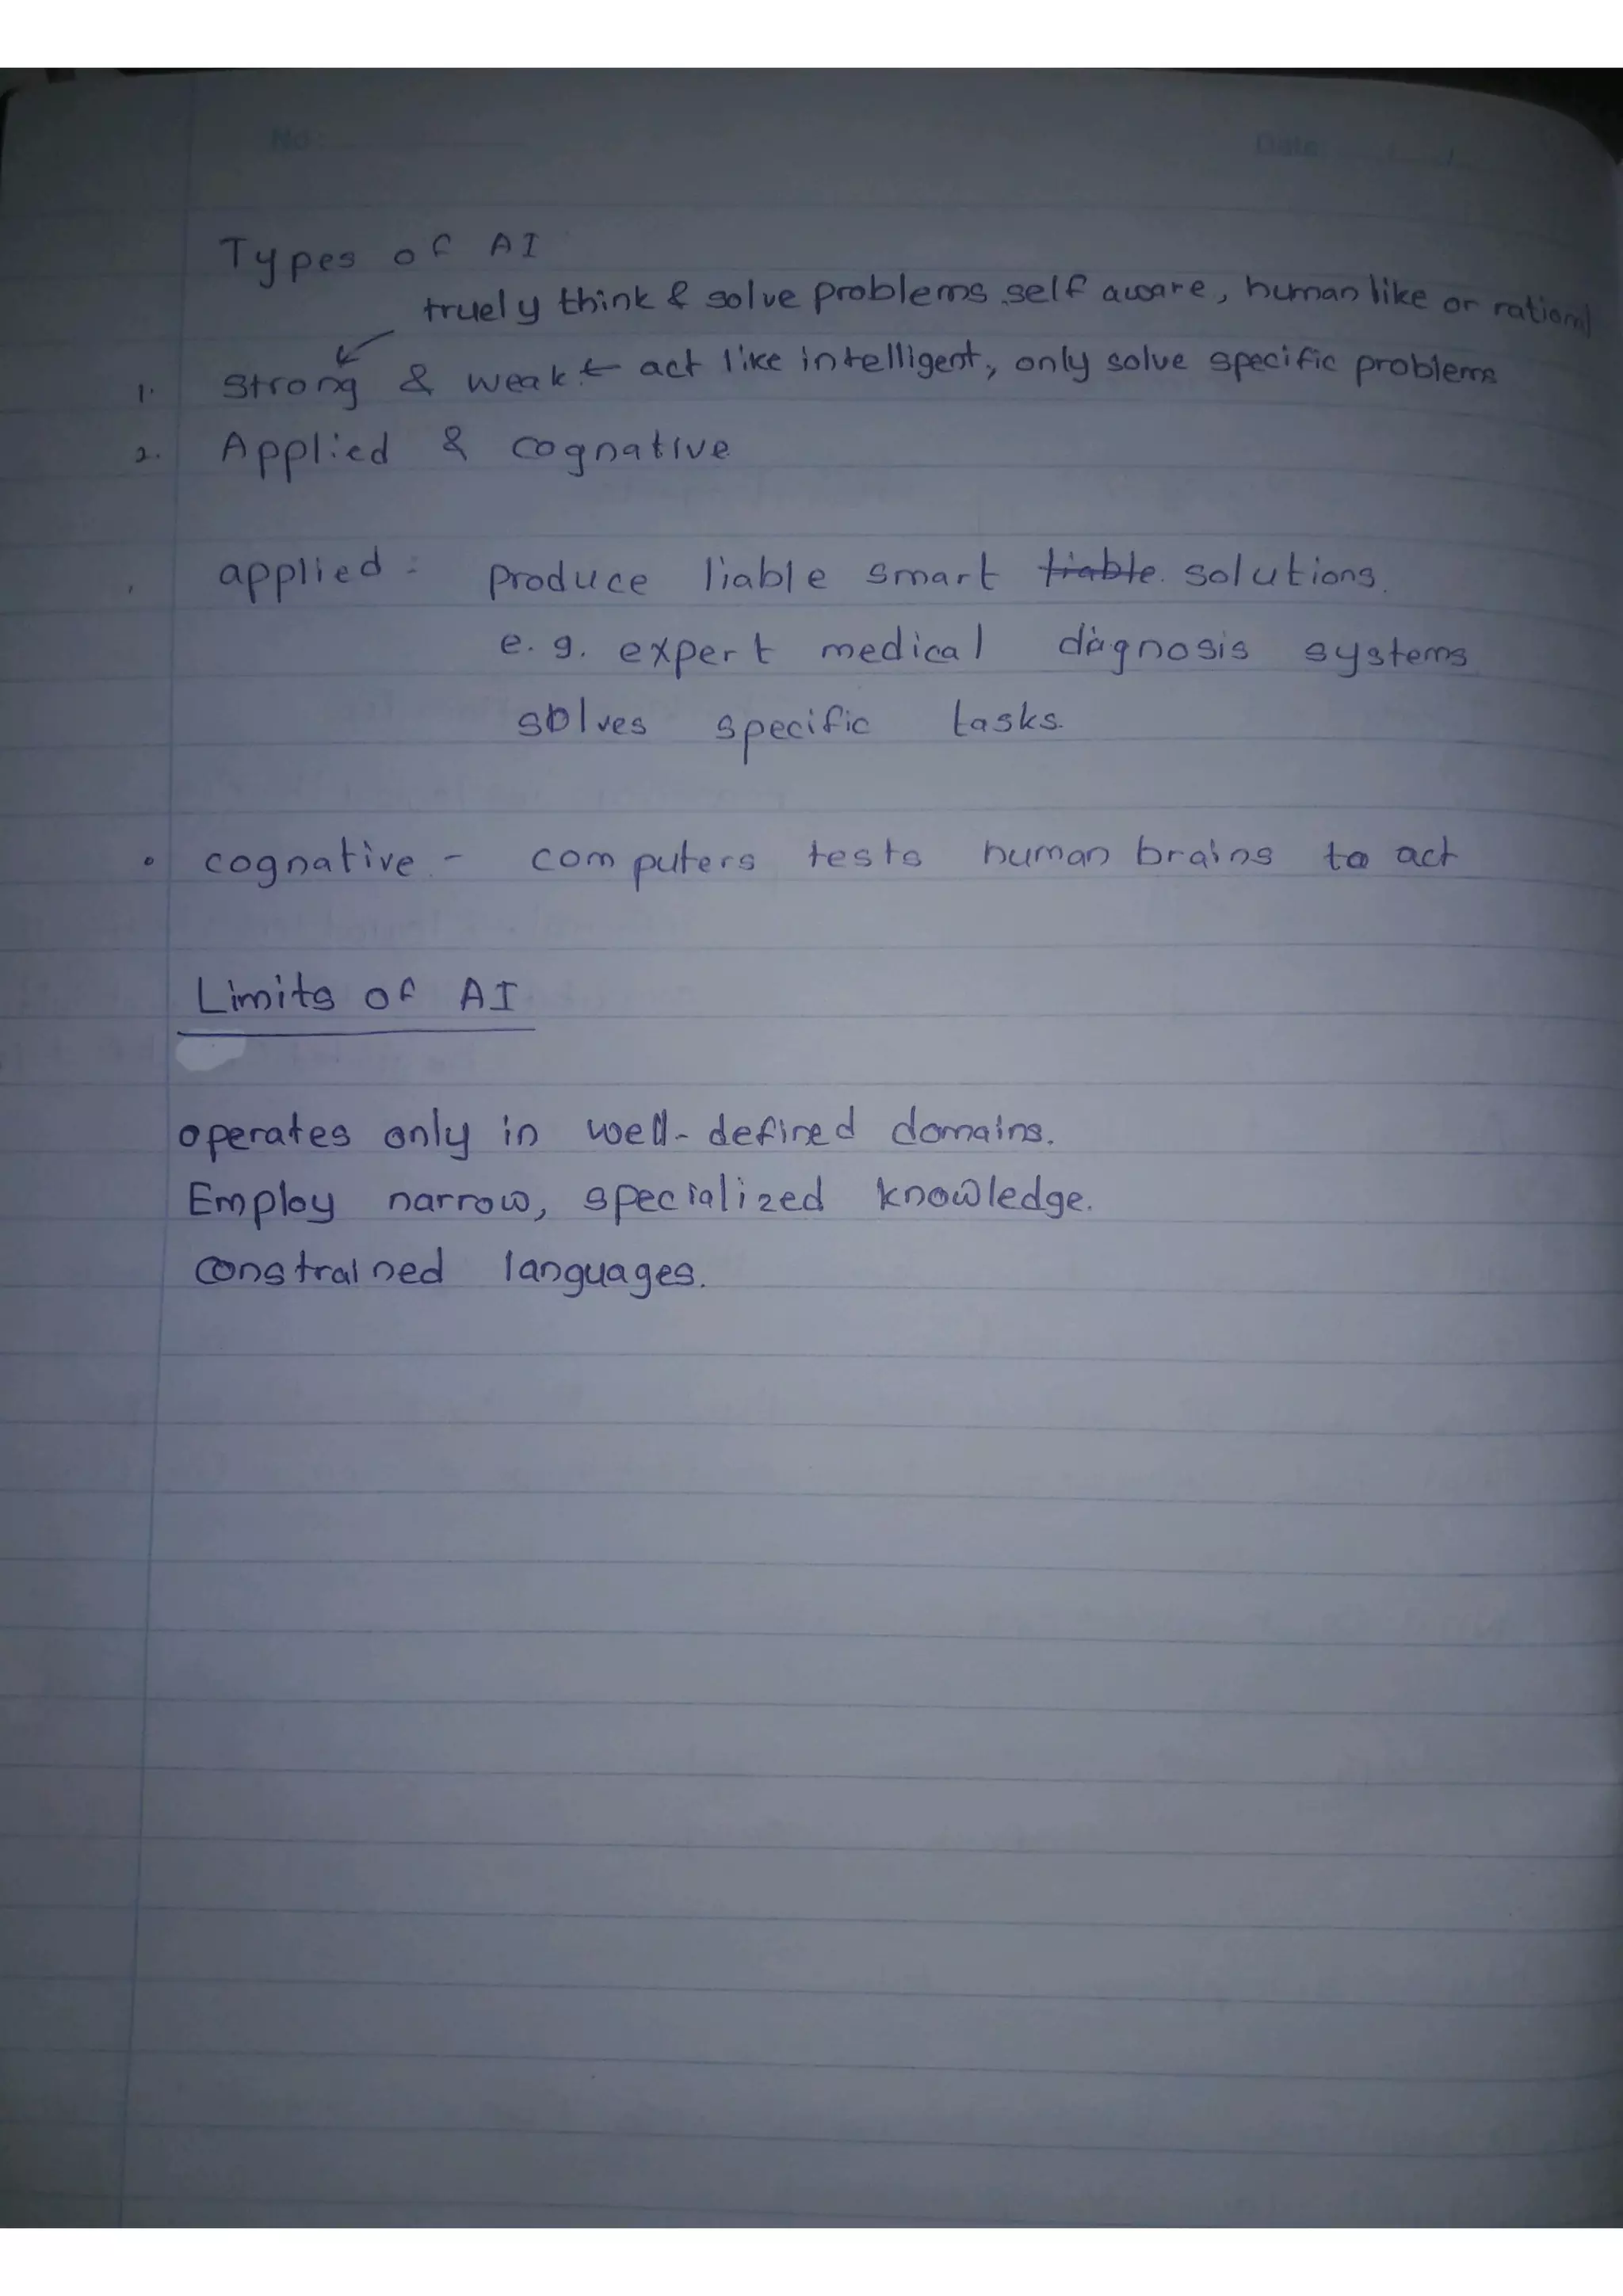 No
Date / /
Types of AI
truely think & solve problems self aware, human like or rational
1. Strong & weak ← act like intelligent, only solve specific problems
2. Applied & cognative
applied: produce liable smart liable. solutions.
e.g. expert medical dagnosis systems
solves specific tasks.
• cognative - computers tests human brains to act
Limits of AI
operates only in well-defined domains.
Employ narrow, specialized knowledge.
constrained languages.